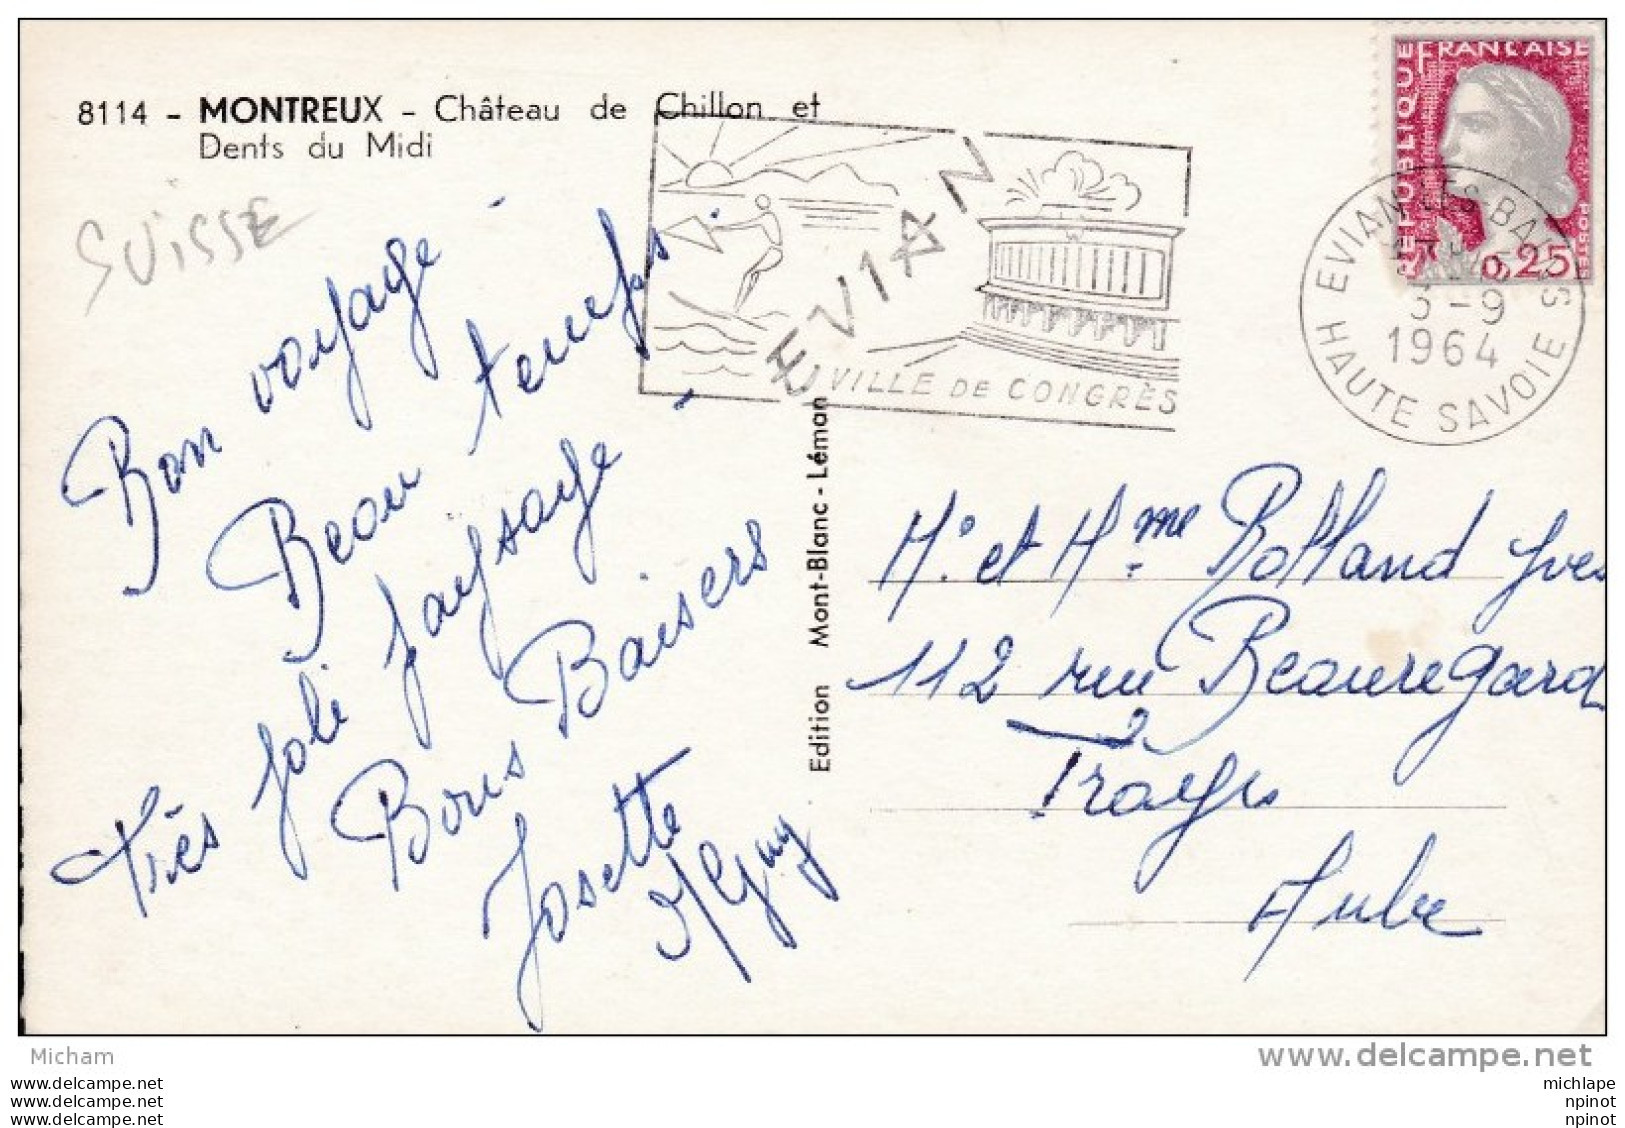 8114 - MONTREUX - Château de Chillon et
Dents du Midi
SUISSE
Bon voyage
Beau temps
Très joli paysage -
Bons Baisers
Josette
Guy
EVIAN
VILLE DE CONGRÈS
REPUBLIQUE FRANÇAISE
POSTES
0,25
EVIAN LES BAINS
3-9
1964
HAUTE SAVOIE
Edition Mont-Blanc - Léman
Mr et Mme Rolland Yves
112 rue Beauregard
Troyes
Aube
Micham
www.delcampe.net
www.delcampe.net
www.delcampe.net
www.delcampe.net
michlape
npinot
npinot